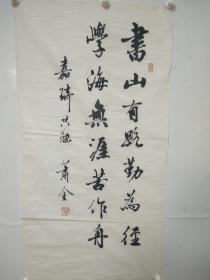 書山有路勤為徑
學海無涯苦作舟
嘉琦共勉 蕭全